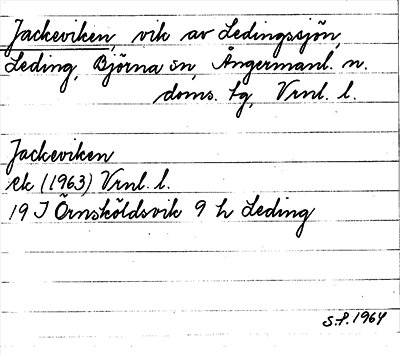 Jackeviken, vik av Ledingssjön,
Leding, Björna sn, Ångermanl. n.
doms. tg, Vrnl. l.
Jackeviken
ek (1963) Vrnl. l.
19 J Örnsköldsvik 9 h Leding
S.F. 1964